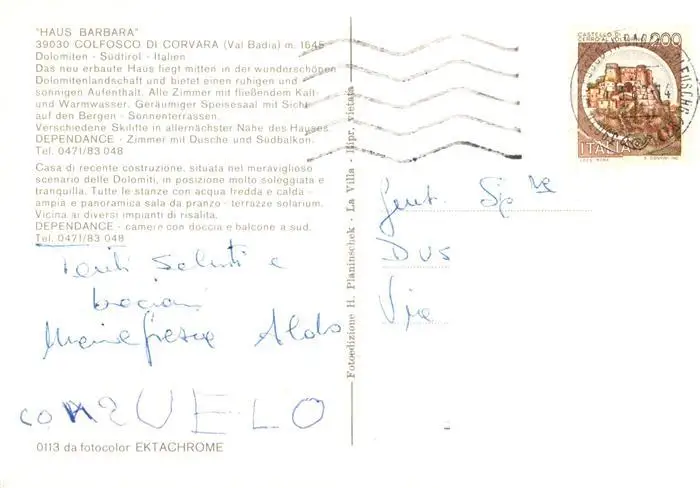 "HAUS BARBARA"
39030 COLFOSCO DI CORVARA (Val Badia) m. 1645
Dolomiten - Südtirol - Italien
Das neu erbaute Haus liegt mitten in der wunderschönen
Dolomitenlandschaft und bietet einen ruhigen und
sonnigen Aufenthalt. Alle Zimmer mit fließendem Kalt-
und Warmwasser. Geräumiger Speisesaal mit Sicht
auf den Bergen - Sonnenterrassen.
Verschiedene Skilifte in allernächster Nähe des Hauses.
DEPENDANCE - Zimmer mit Dusche und Südbalkon.
Tel. 0471/83 048
Casa di recente costruzione, situata nel meraviglioso
scenario delle Dolomiti, in posizione molto soleggiata e
tranquilla. Tutte le stanze con acqua fredda e calda -
ampia e panoramica sala da pranzo - terrazze solarium.
Vicina ai diversi impianti di risalita.
DEPENDANCE - camere con doccia e balcone a sud.
Tel. 0471/83 048
Tanti saluti e
bacioni
Mariateresa Aldo
CONSUELO
0113 da fotocolor EKTACHROME
Fotoedizione H. Planinschek - La Villa - Ripr. vietata
CASTELLO DI
CERRO AL VOLTURNO
200
ITALIA
Gent. Sp
Via